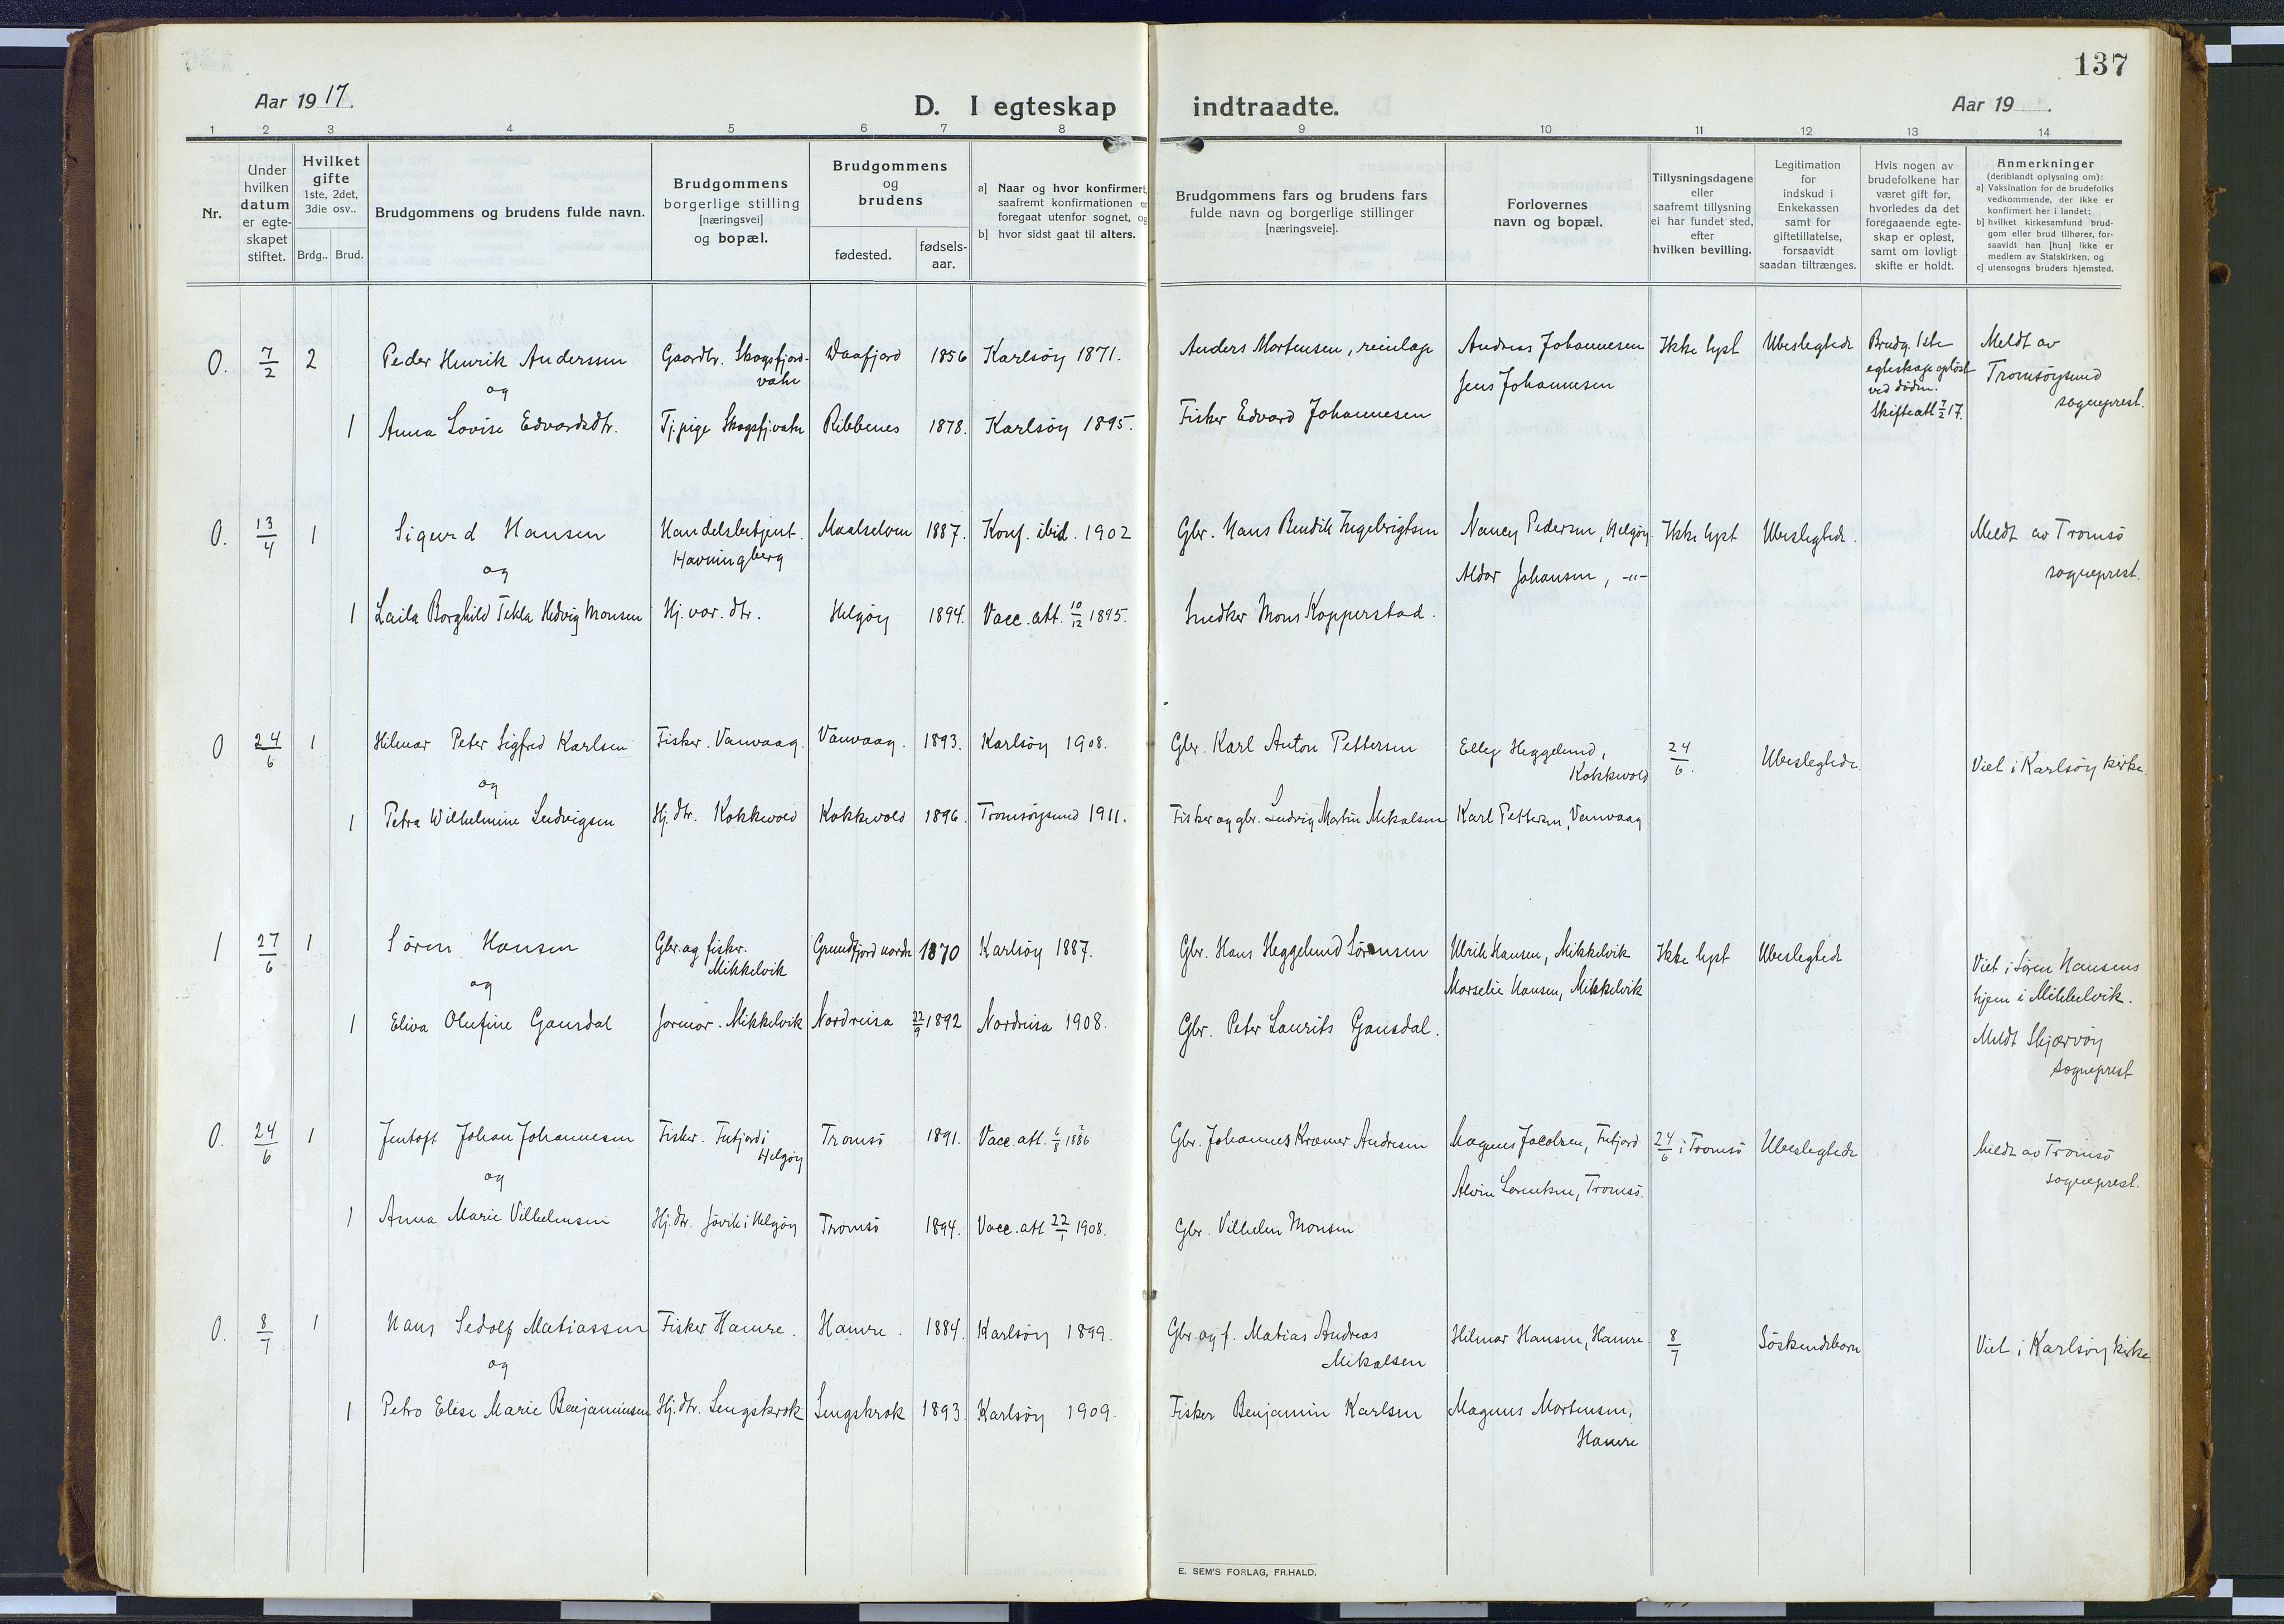 137
Aar 1917.
D. I egteskap indtraadte.
Aar 19 .
1 2 3 4 5 6 7 8 9 10 11 12 13 14
Nr.
Under
hvilken
datum
er egte-
skapet
stiftet.
Hvilket
gifte
1ste, 2det,
3die osv..
Brdg.. Brud.
Brudgommens og brudens fulde navn.
Brudgommens
borgerlige stilling
[næringsvei]
og bopæl.
Brudgommens
og
brudens
fødested.
fødsels-
aar.
a] Naar og hvor konfirmert,
saafremt konfirmationen er
foregaat utenfor sognet, og
b] hvor sidst gaat til alters.
Brudgommens fars og brudens fars
fulde navn og borgerlige stillinger
[næringsveie].
Forlovernes
navn og bopæl.
Tillysningsdagene
eller
saafremt tillysning
ei har fundet sted,
efter
hvilken bevilling.
Legitimation
for
indskud i
Enkekassen
samt for
giftetillatelse,
forsaavidt
saadan tiltrænges.
Hvis nogen av
brudefolkene har
været gift før,
hvorledes da det
foregaaende egte-
skap er opløst,
samt om lovligt
skifte er holdt.
Anmerkninger
(deriblandt oplysning om):
a] Vaksination for de brudefolks
vedkommende, der ikke er
konfirmert her i landet;
b] hvilket kirkesamfund brud-
gom eller brud tilhører, for-
saavidt han [hun] ikke er
medlem av Statskirken, og
c] utensogns bruders hjemsted.
0. 7/2 2 Peder Henrik Anderssen Gaardbr. Skogsfjord-vatn Daafjord 1856 Karlsøy 1871. Anders Mortensen, reinlap Andreas Johannesen Ikke lyst Ubeslegtede Brudg. 1ste Meldt av
og Jens Johannesen egteskap opløst Tromsøysund
ved døden. sogneprest.
1 Anna Lovise Edvardsdtr. Tj.pige Skogsfj.vatn Ribbenes 1878. Karlsøy 1895. Fisker Edvard Johannesen Skifteatt 7/2 17.
0. 13/4 1 Sigurd Hansen Handelsbetjent. Maalselven 1887. Konf. ibid. 1902 Gbr. Hans Bendik Ingebrigtsen Nancy Pedersen, Helgøy Ikke lyst Ubeslegtede. Meldt av Tromsø
Havningberg sogneprest.
og Aldor Johansen, -"-
1 Laila Borghild Tekla Hedvig Monsen Hj.vær. dtr. Helgøy 1894. Vacc. att. 10/12 1895. Snedker Mons Kopperstad.
0 24/6 1 Hilmar Peter Sigfred Karlsen Fisker. Vanvaag. Vanvaag. 1893. Karlsøy 1908. Gbr. Karl Anton Pettersen Elleg Heggelund, 24/6. Ubeslegtede. Viet i Karlsøy kirke.
og Kokkvold
1 Petra Wilhelmine Ludvigsen Hj.dtr. Kokkvold Kokkvold 1896. Tromsøysund 1911. Fisker og gbr. Ludvig Martin Mikalsen Karl Pettersen, Vanvaag
1 27/6 1 Søren Hansen Gbr. og fisker. Grundfjord nordre 1870 Karlsøy 1887. Gbr. Hans Heggelund Sørensen Ulrik Hansen, Mikkelvik Ikke lyst Ubeslegtede Viet i Søren Hansens
Mikkelvik hjem i Mikkelvik.
og Marselie Hansen, Mikkelvik
1 Eliva Olufine Gausdal Jormor. Mikkelvik Nordreisa 22/9 1892 Nordreisa 1908. Gbr. Peter Laurits Gausdal. Meldt Skjærvøy
sogneprest
0. 24/6 1 Jentoft Johan Johannesen Fisker. Futfjord i Tromsø 1891. Vacc. att. Gbr. Johannes Kræmer Andresen Magnus Jacobsen, Futfjord 24/6 i Tromsø Ubeslegtede Meldt av Tromsø
Helgøy sogneprest.
og Alvin Lorentsen, Tromsø.
1 Anna Marie Vilhelmsen Hj.dtr. Jøvik i Helgøy Tromsø 1894. Vacc. att 22/1 1908. Gbr. Vilhelm Monsen
0. 8/7 1 Hans Sedolf Matiassen Fisker Hamre. Hamre. 1884. Karlsøy 1899. Gbr. og f. Matias Andreas Hilmar Hansen, Hamre 8/7 Søskendebarn Viet i Karlsøy kirke
Mikalsen
og
1 Petra Elise Marie Benjaminsen Hj.dtr. Lengskrok Lengskrok 1893. Karlsøy 1909. Fisker Benjamin Karlsen Magnus Mortensen,
Hamre
E. SEM'S FORLAG, FR.HALD.